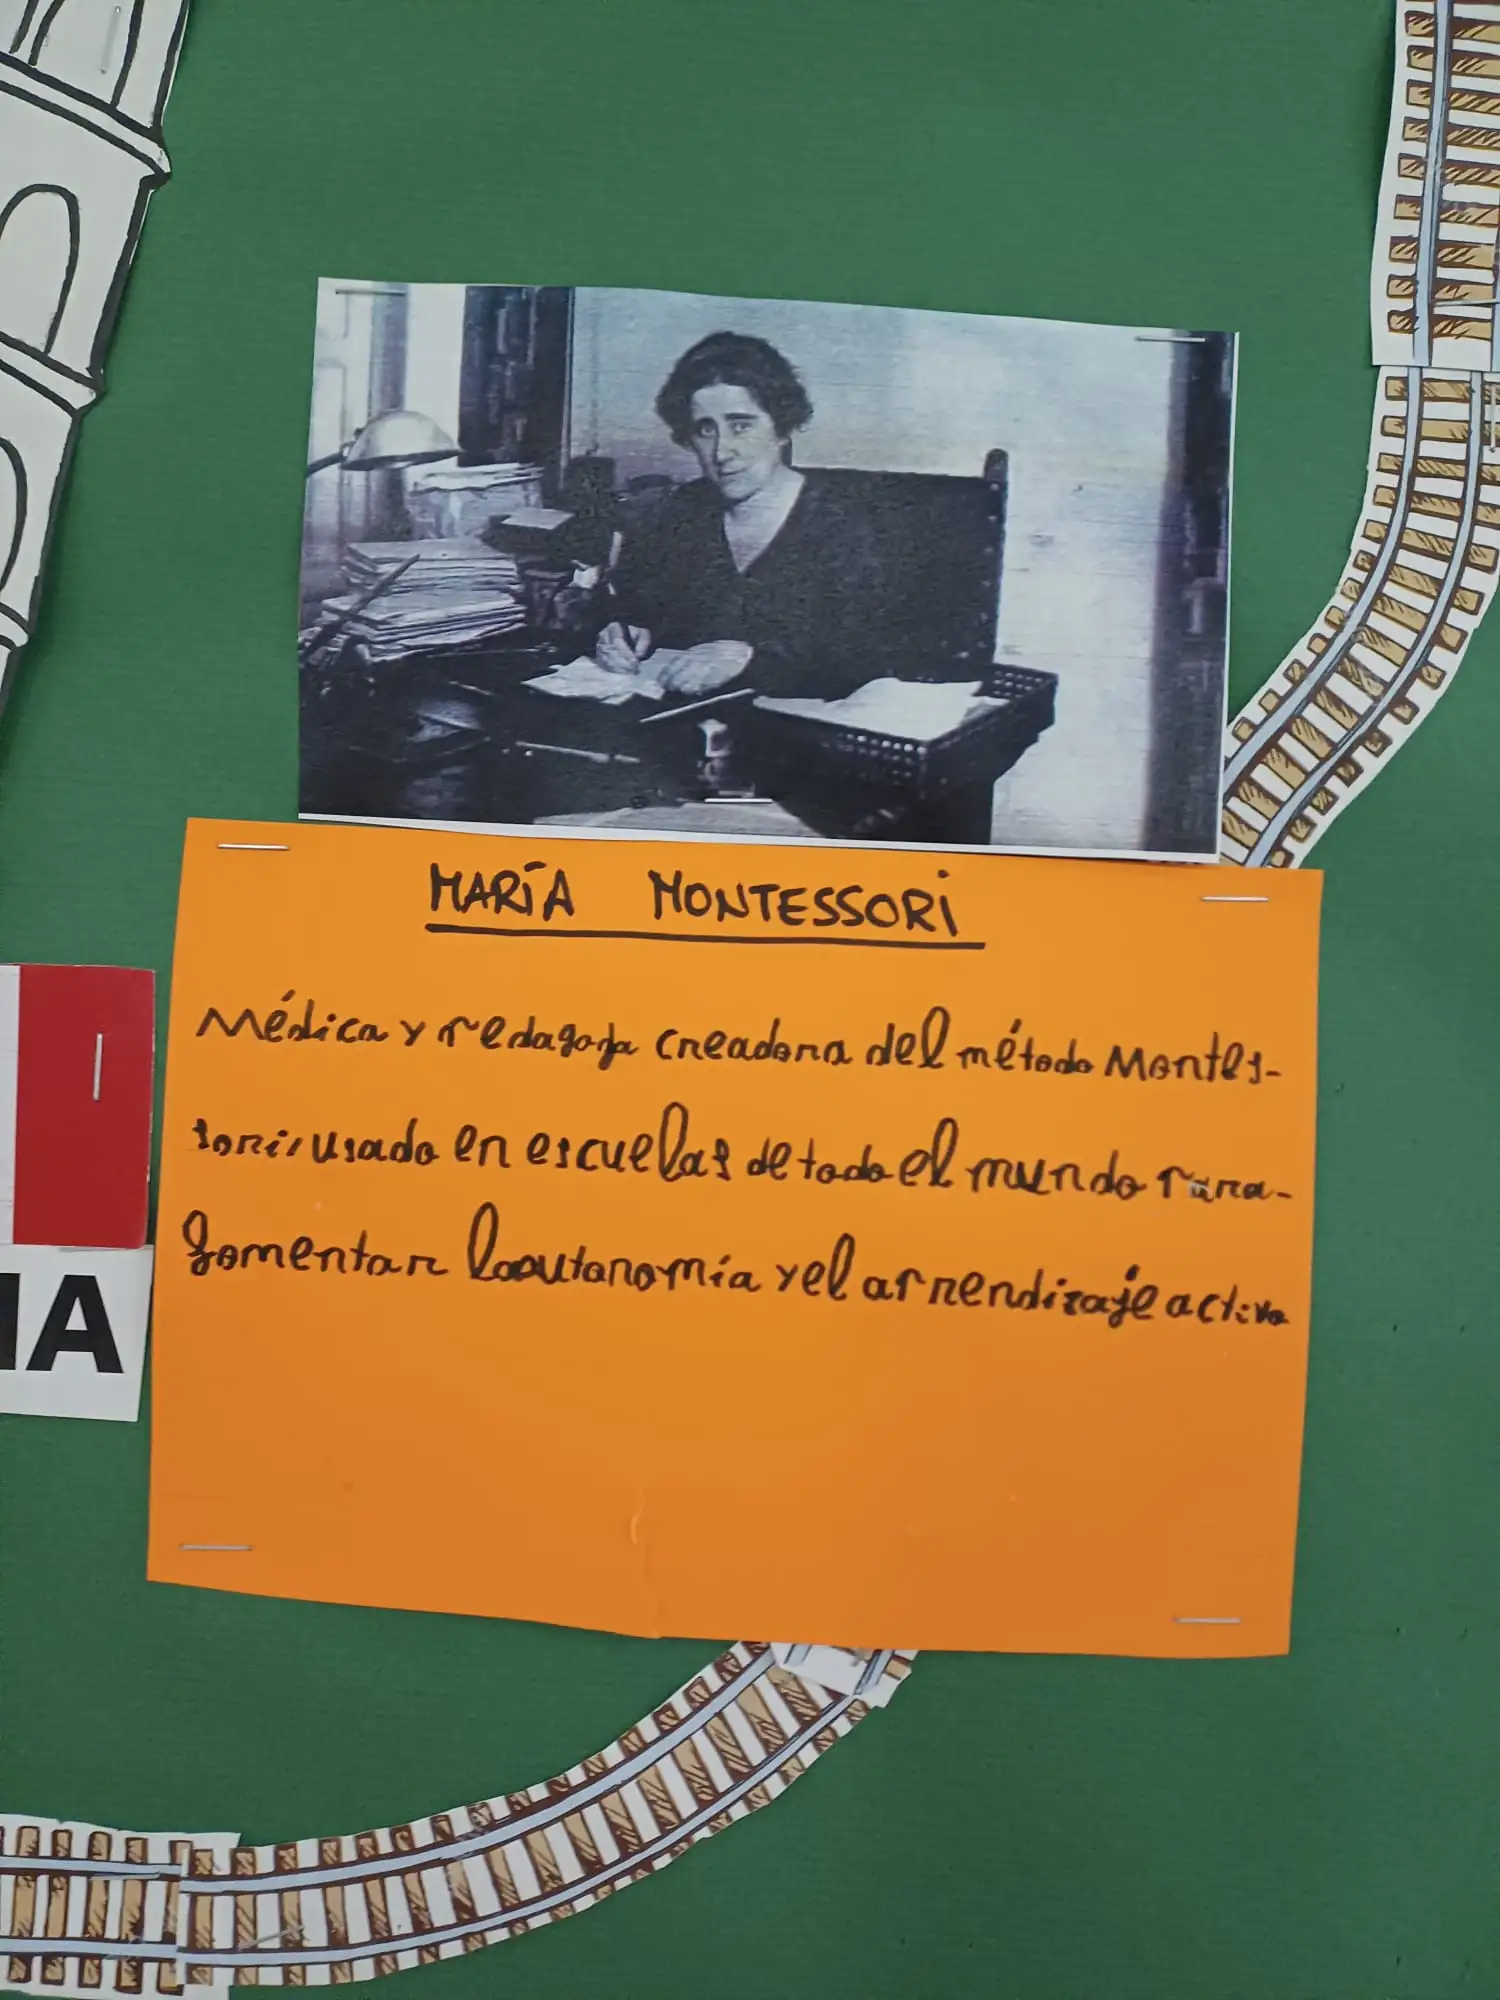 MARÍA MONTESSORI
Médica y pedagoga creadora del método Montes-
sori, usado en escuelas de todo el mundo para
fomentar la autonomía y el aprendizaje activo
IA